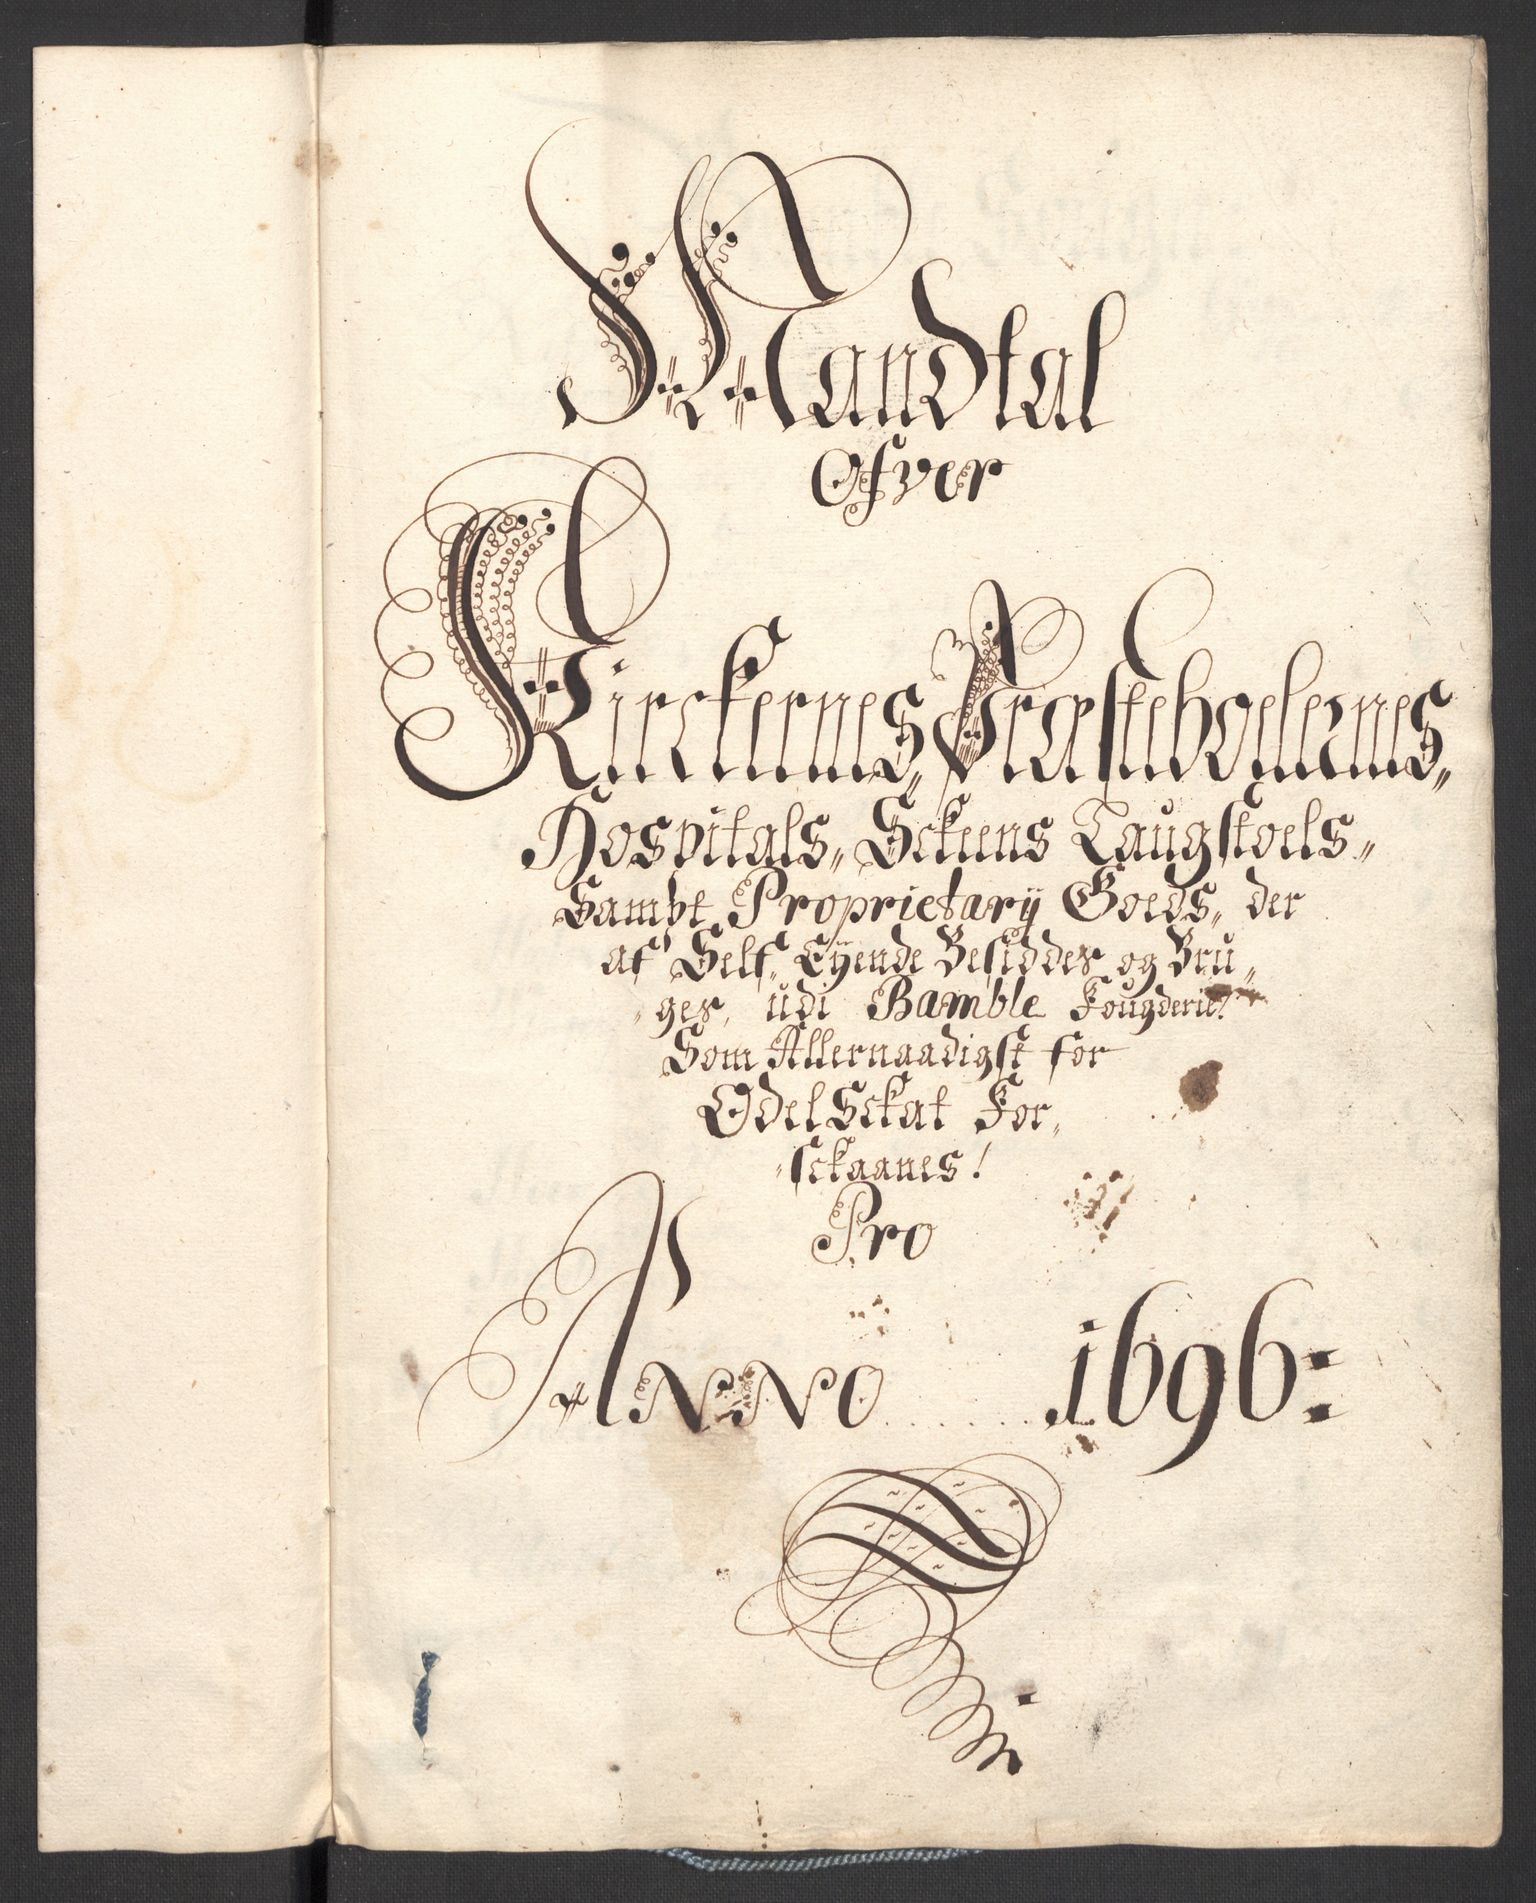 Mandtal
Ofver
Kirckernes, Præsteboelernes,
Hospitals, Sckeens Laugstoels,
Sambt Proprietarÿ Goeds, der
af Self Eÿende Besiddes og Bru,
ges, udi Bamble Fougderie!
Som Allernaadigst for
OdelSckat For,
sckaanes!
Pro
Anno 1696: